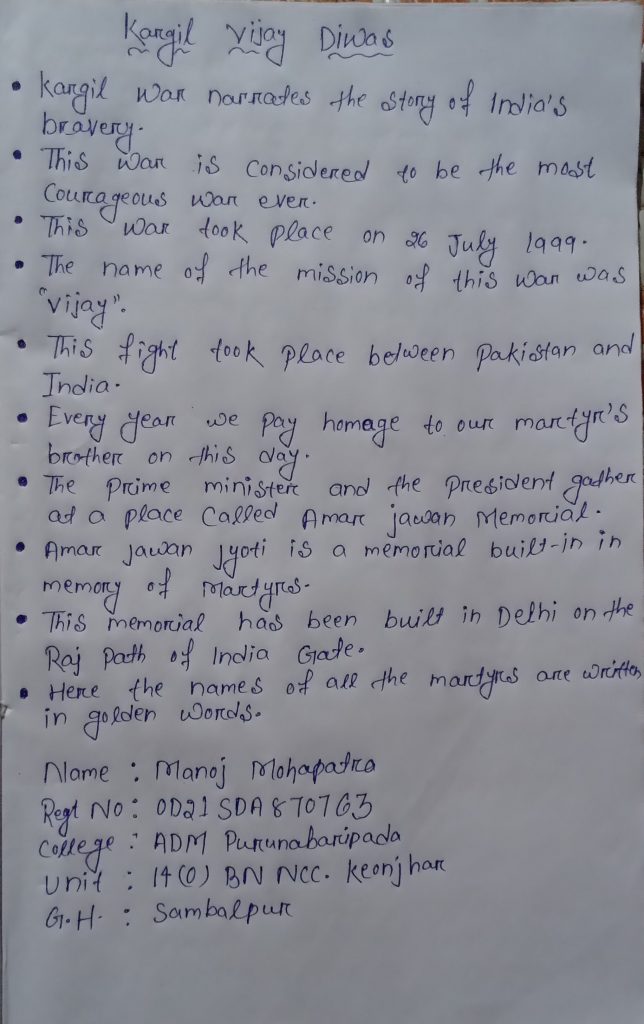 Kargil Vijay Diwas
• Kargil war narrates the story of India's
bravery.
• This war is considered to be the most
Courageous war ever.
• This war took place on 26 July 1999.
• The name of the mission of this war was
"vijay".
• This fight took place between pakistan and
India.
• Every year we pay homage to our martyr's
brother on this day.
• The prime minister and the president gather
at a place called Amar jawan Memorial.
• Amar jawan Jyoti is a memorial built-in in
memory of martyrs.
• This memorial has been built in Delhi on the
Raj path of India Gate.
• Here the names of all the martyrs are written
in golden words.
Name : Manoj Mohapatra
Regt No : OD21SDA870763
College : ADM Purunabaripada
Unit : 14(O) BN NCC. Keonjhar
G.H. : Sambalpur